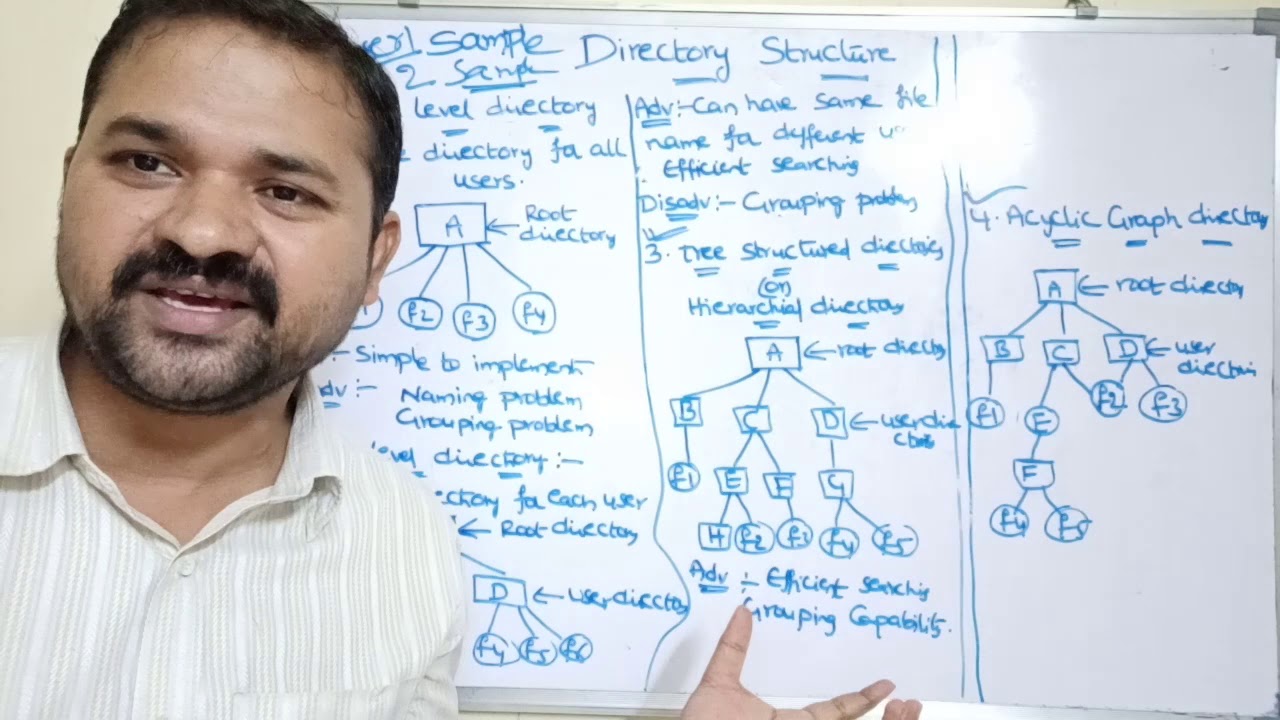 Sample Directory Structure
2 Sample
level directory
directory for all
users.
A
Root
directory
f2 f3 f4
:- Simple to implement
dv :- Naming problem
Grouping problem
level directory :-
ctory for each user
Root directory
D
user directory
f4 f5 f6
Adv :- Can have same file
name for different u
Efficient searching
Disadv :- Grouping problem
3. Tree structured directories
(or)
Hierarchial directory
A
root directory
B C D
user dire
f1 E F G
H f2 f3 f4 f5
Adv :- Efficient searching
Grouping Capability.
4. Acyclic Graph directory
A
root directory
B C D
user
f1 E f2 f3
F
f4 f5